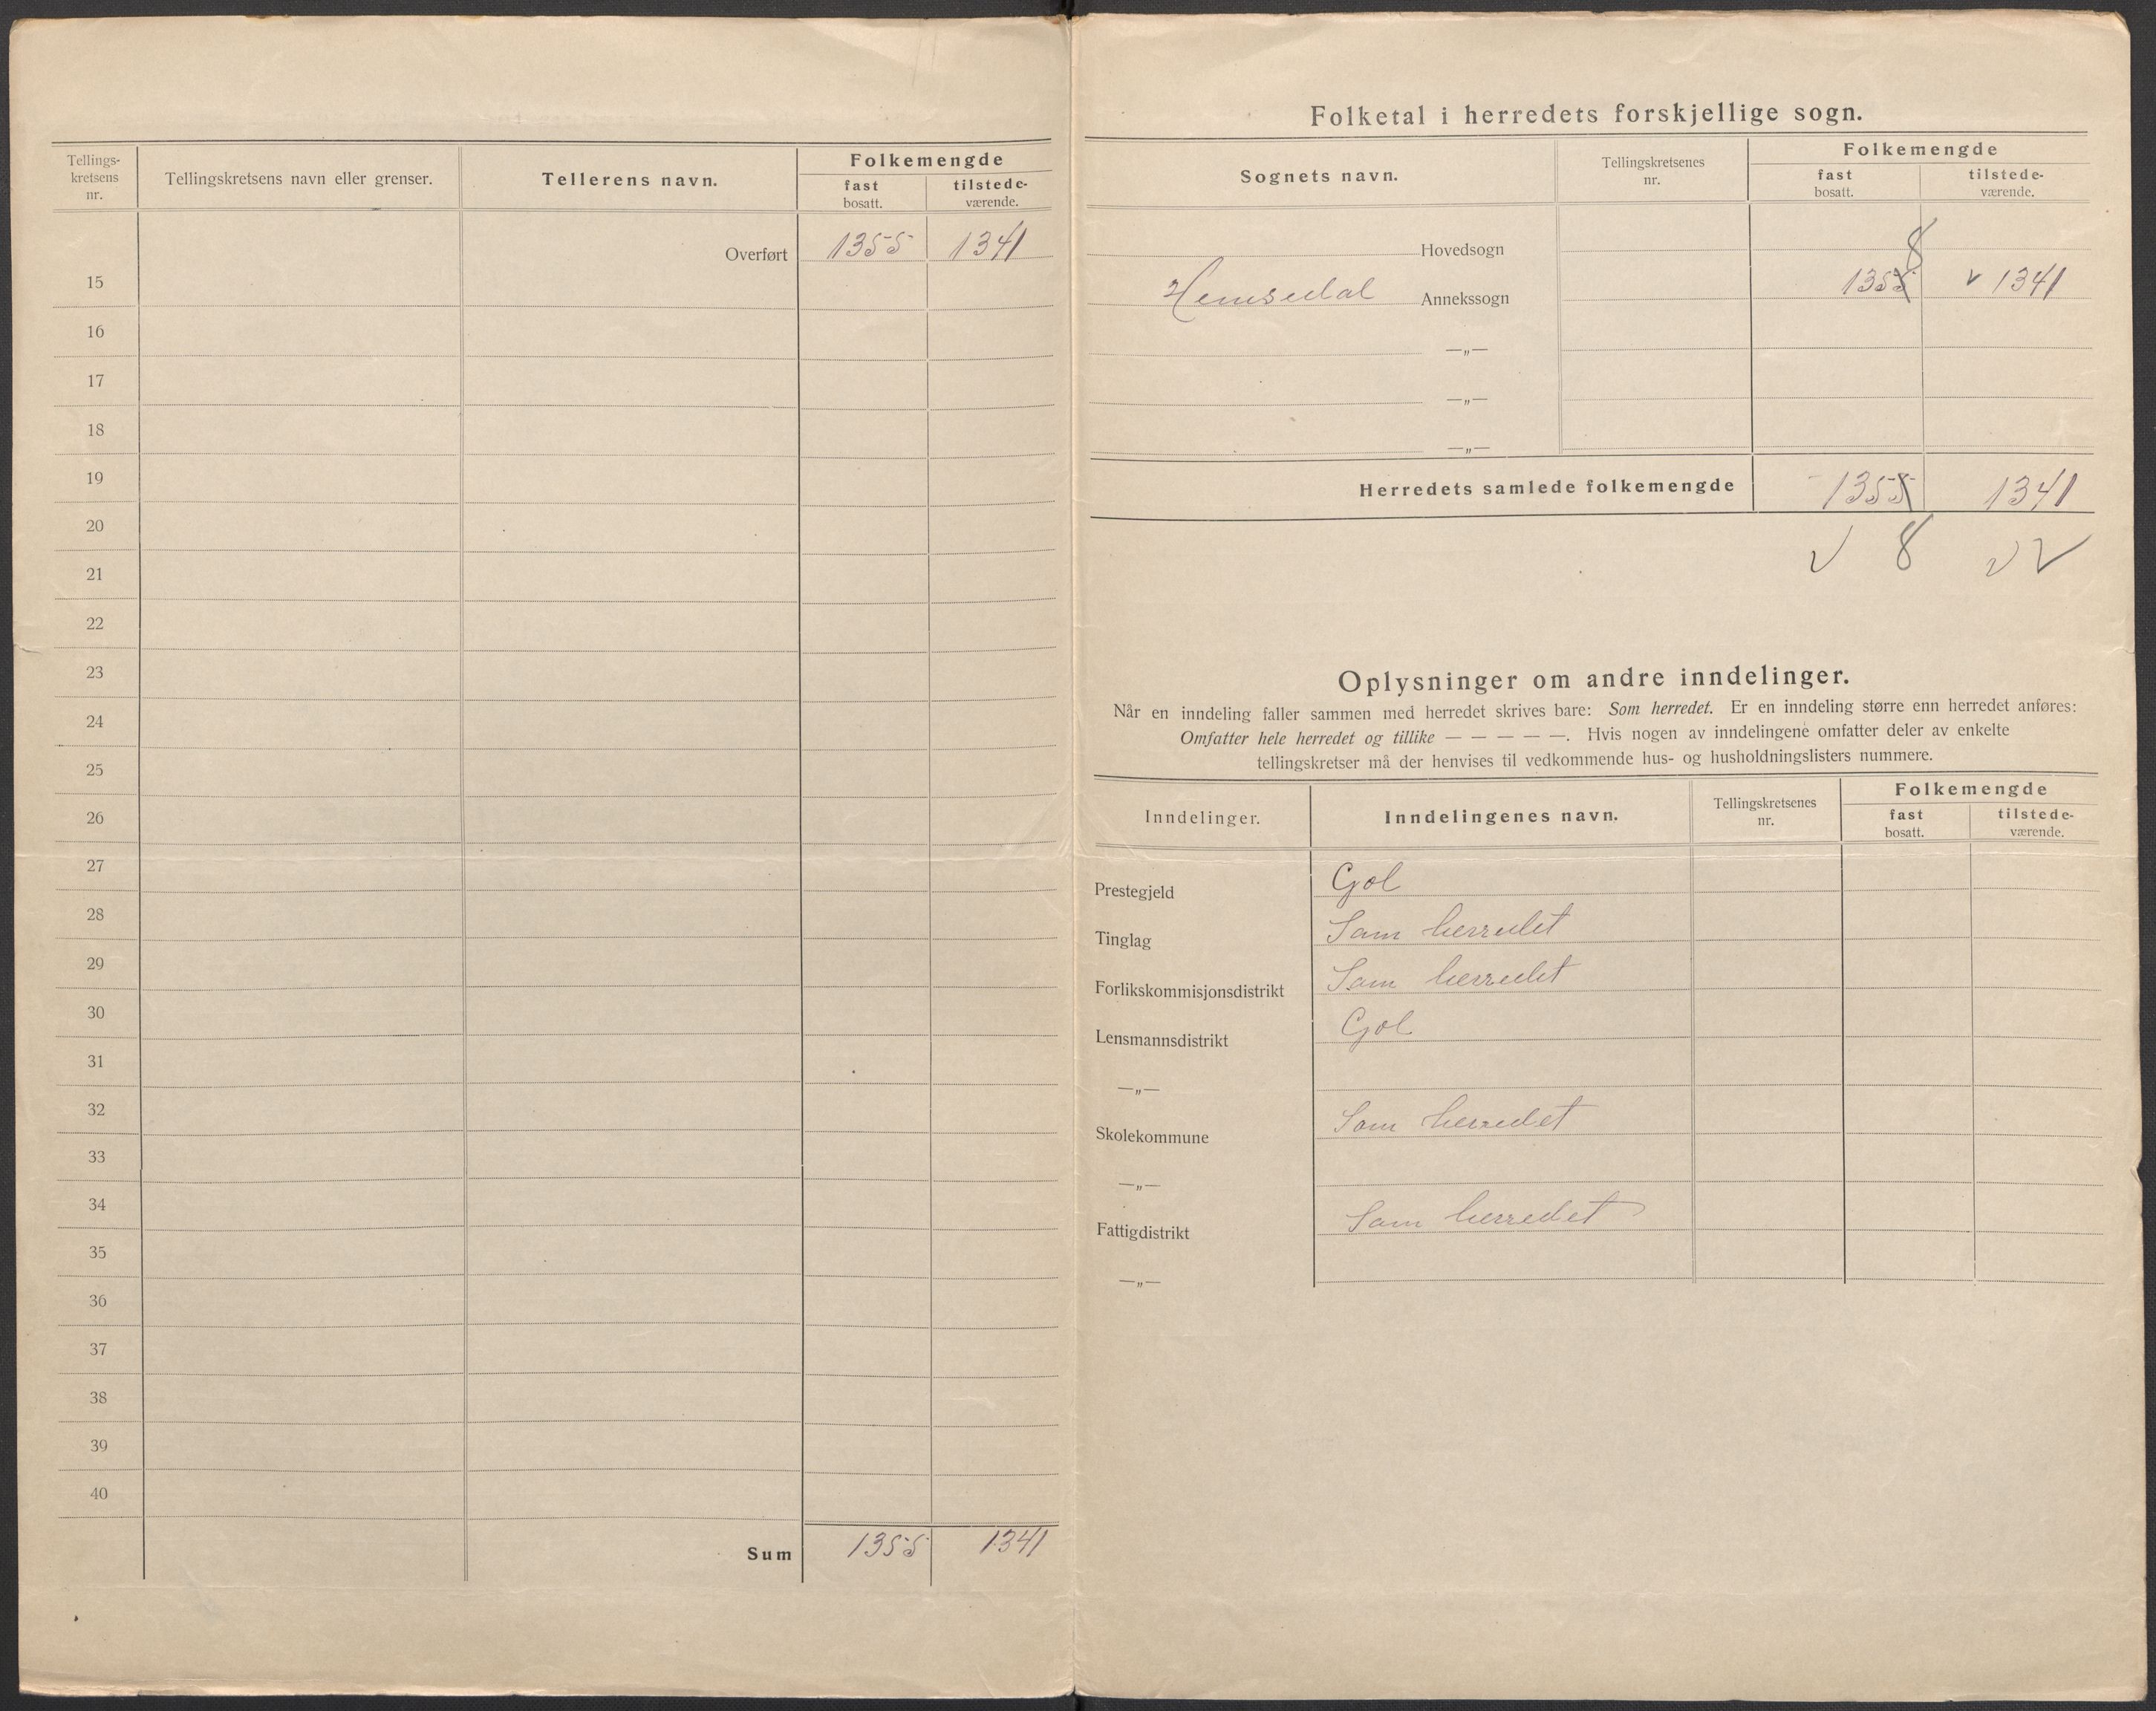 Tellings-
kretsens
nr.
Tellingskretsens navn eller grenser.
Tellerens navn.
Folkemengde
fast
bosatt.
tilstede-
værende.
Overført 1355 1341
15
16
17
18
19
20
21
22
23
24
25
26
27
28
29
30
31
32
33
34
35
36
37
38
39
40
Sum 1355 1341
Folketal i herredets forskjellige sogn.
Sognets navn.
Tellingskretsenes
nr.
Folkemengde
fast
bosatt.
tilstede-
værende.
Hovedsogn
8
Hemsedal Annekssogn 1355 ✓ 1341
—„—
—„—
—„—
Herredets samlede folkemengde 1355 1341
✓ 8 ✓ ✓
Oplysninger om andre inndelinger.
Når en inndeling faller sammen med herredet skrives bare: Som herredet. Er en inndeling større enn herredet anføres:
Omfatter hele herredet og tillike — — — — —. Hvis nogen av inndelingene omfatter deler av enkelte
tellingskretser må der henvises til vedkommende hus- og husholdningslisters nummere.
Inndelinger.
Inndelingenes navn.
Tellingskretsenes
nr.
Folkemengde
fast
bosatt.
tilstede-
værende.
Prestegjeld Gol
Tinglag Som herredet
Forlikskommisjonsdistrikt Som herredet
Lensmannsdistrikt Gol
—„—
Skolekommune Som herredet
—„—
Fattigdistrikt Som herredet
—„—